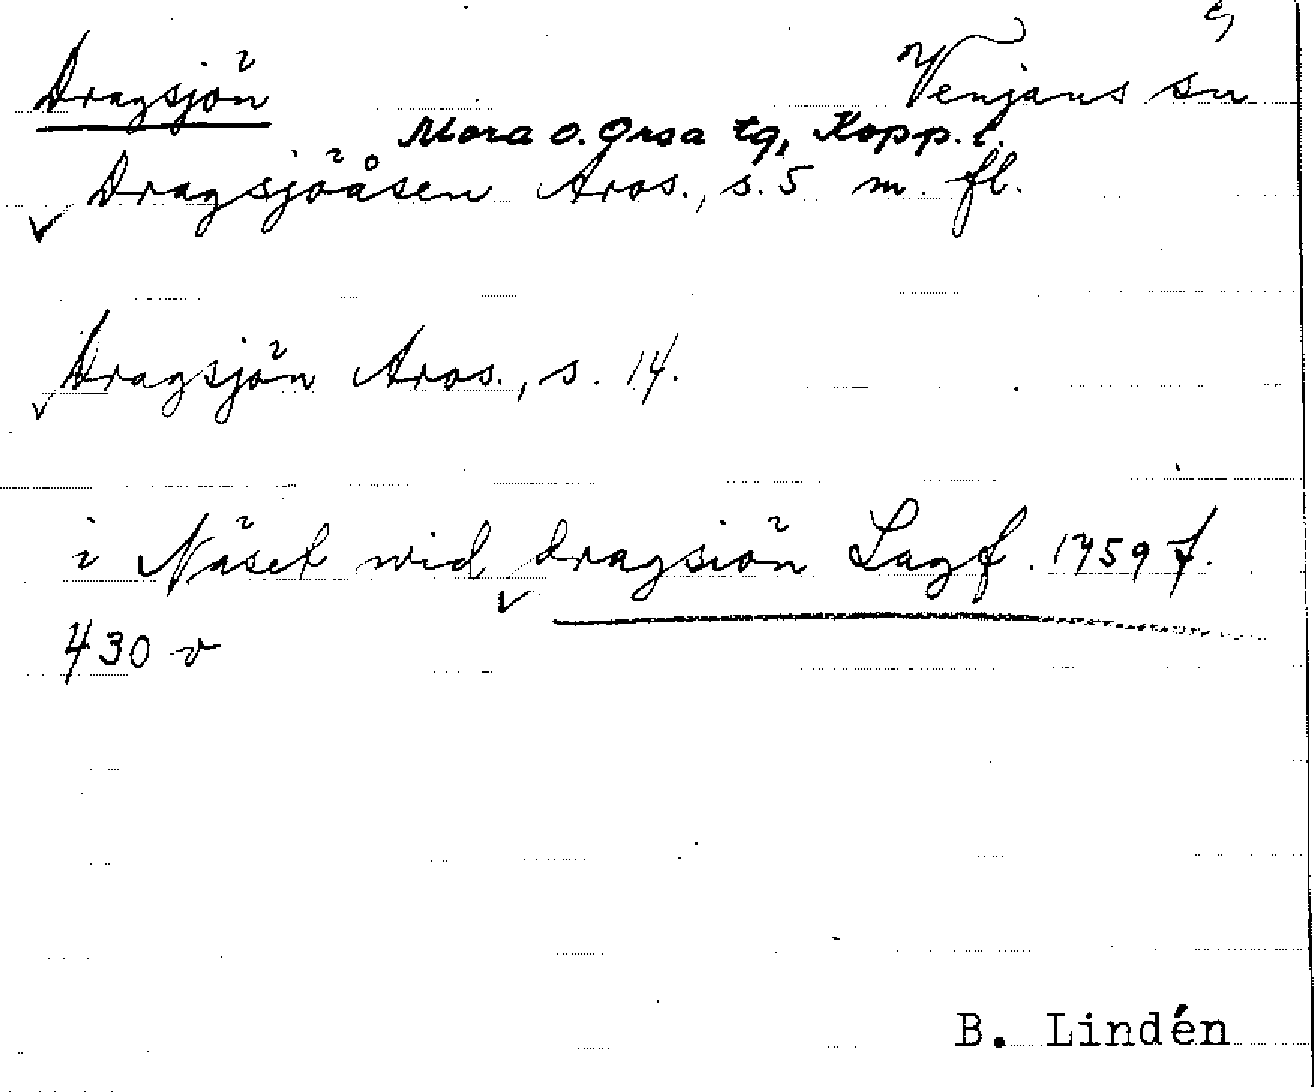 Dragsjön Venjans sn
Mora o. Orsa tg, Kopp. l.
Dragsjöåsen Aros., s. 5 m. fl.
Dragsjön Aros., s. 14.
i Näset wid dragsiön Lagf. 1759 f.
430 v
B. Lindén